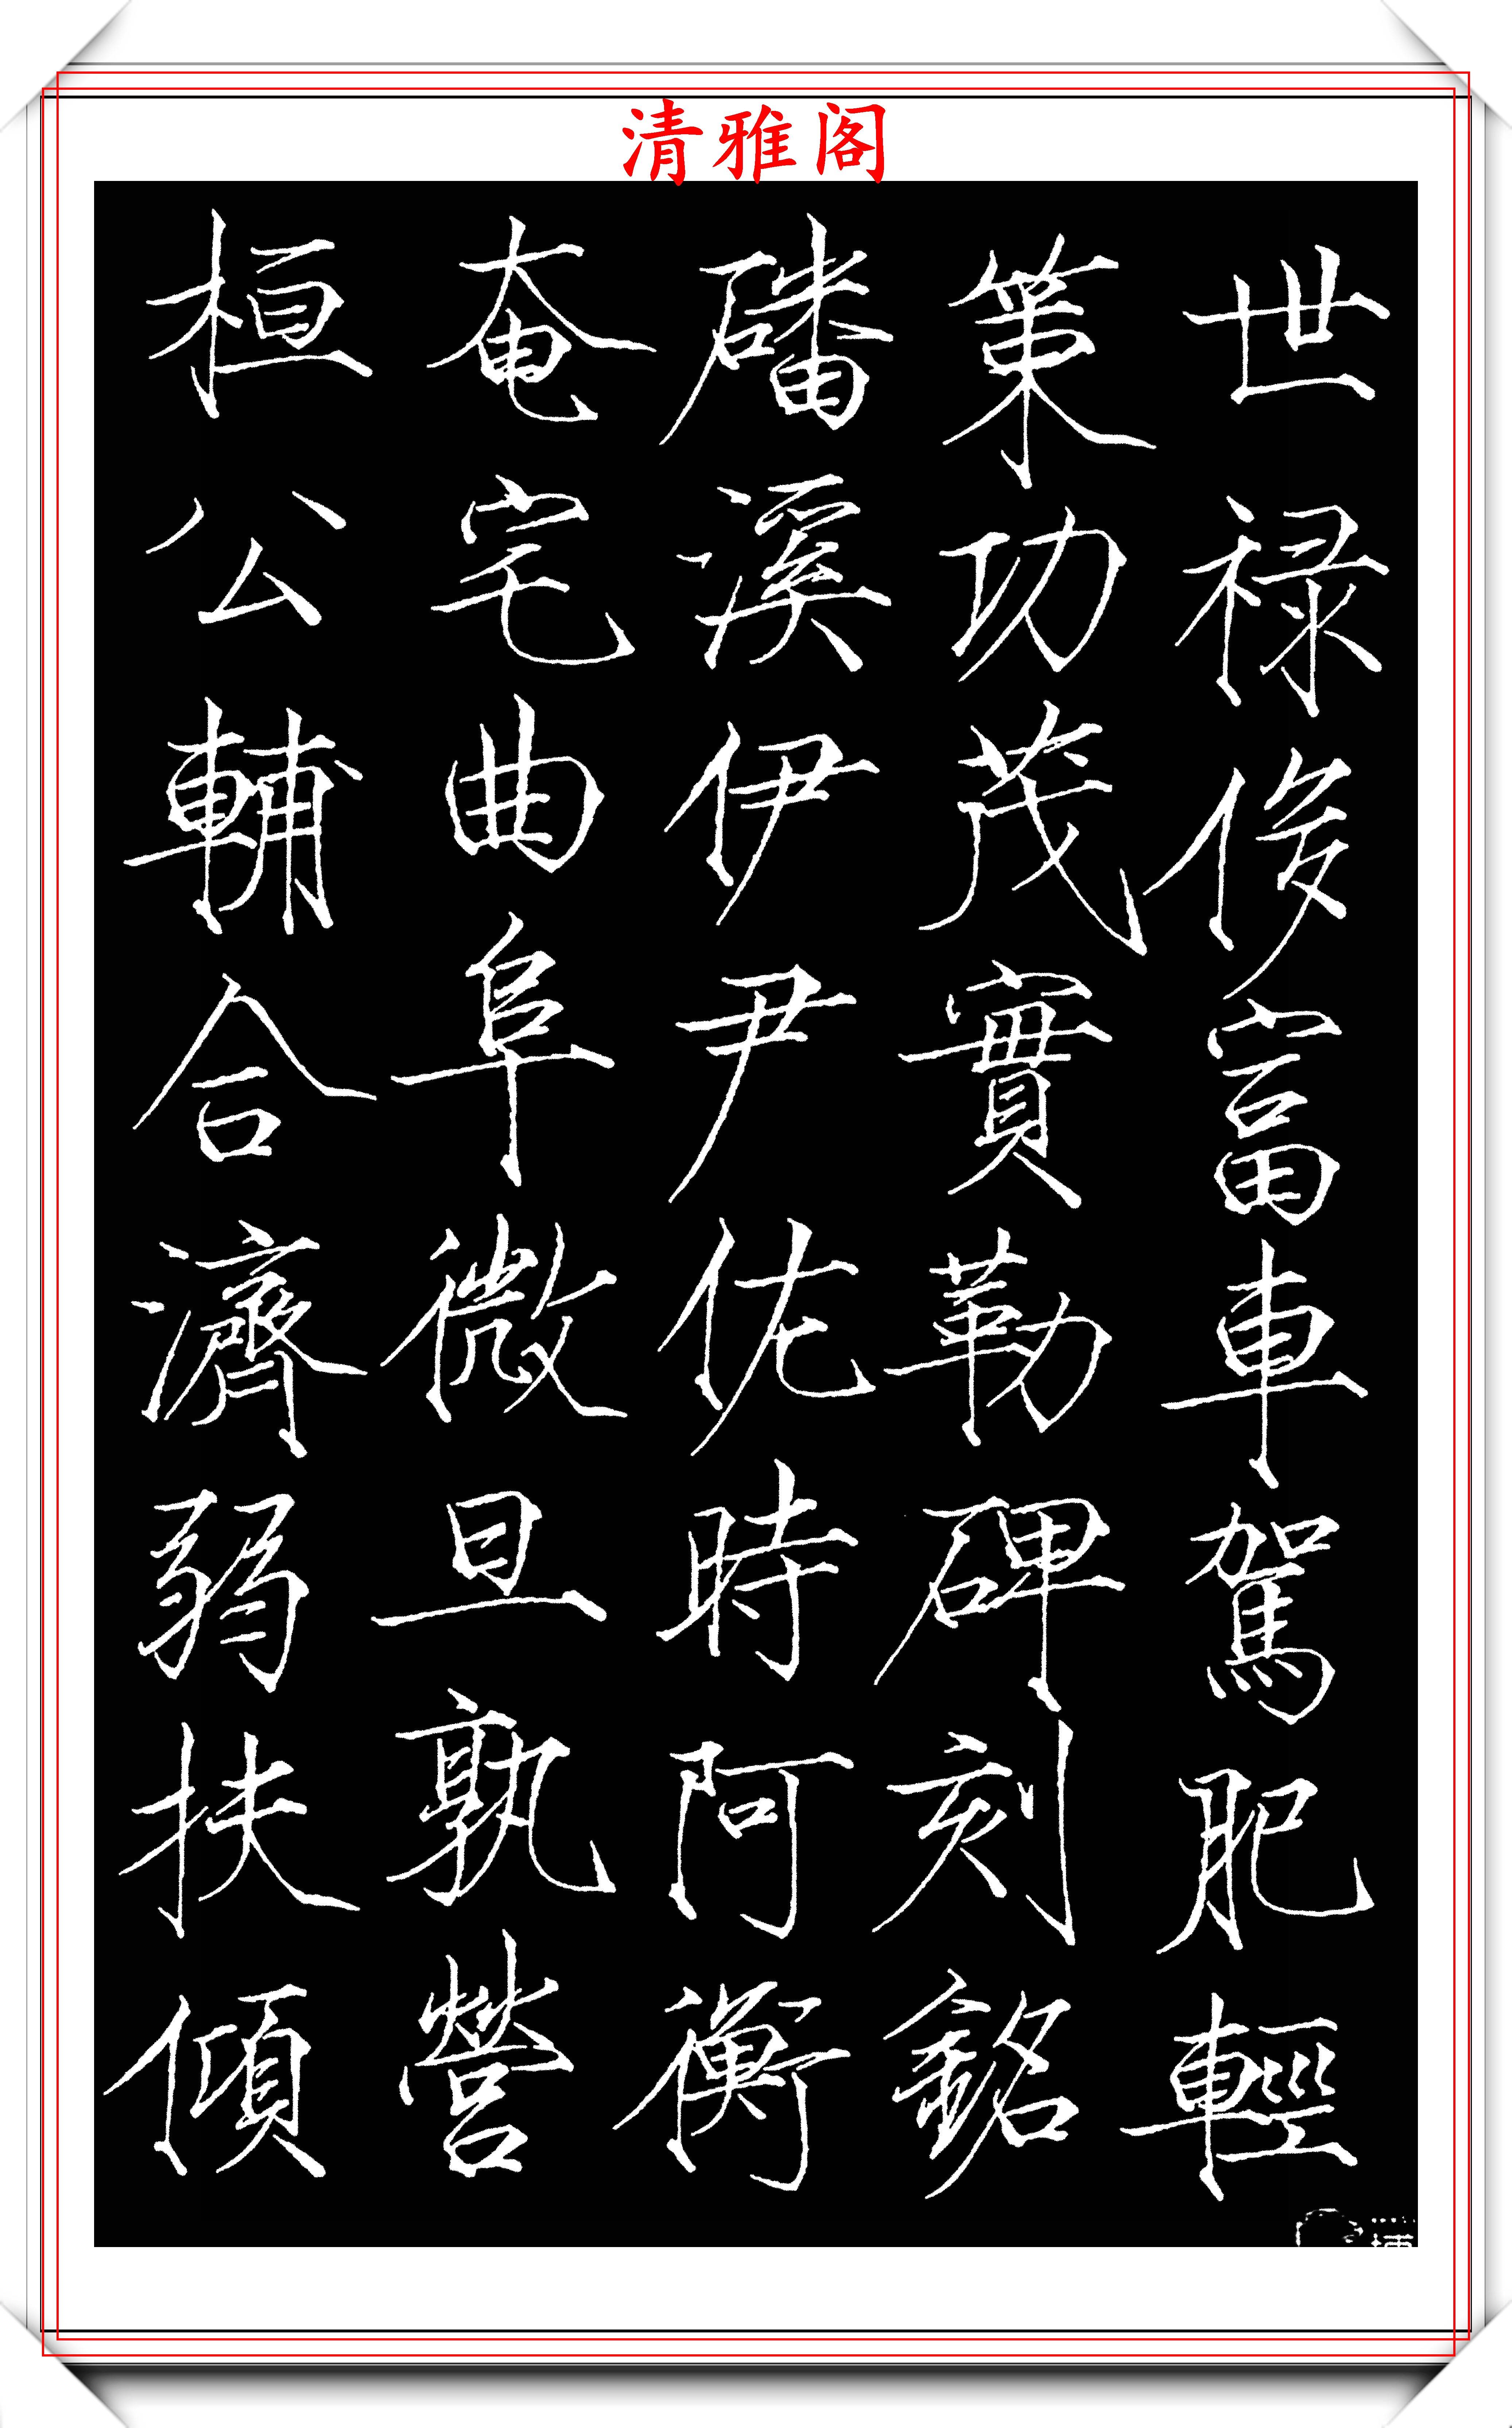 清雅阁
世禄侈富車駕肥輕
策功茂實勒碑刻銘
磻溪伊尹佐時阿衡
奄宅曲阜微旦孰營
桓公輔合濟弱扶傾